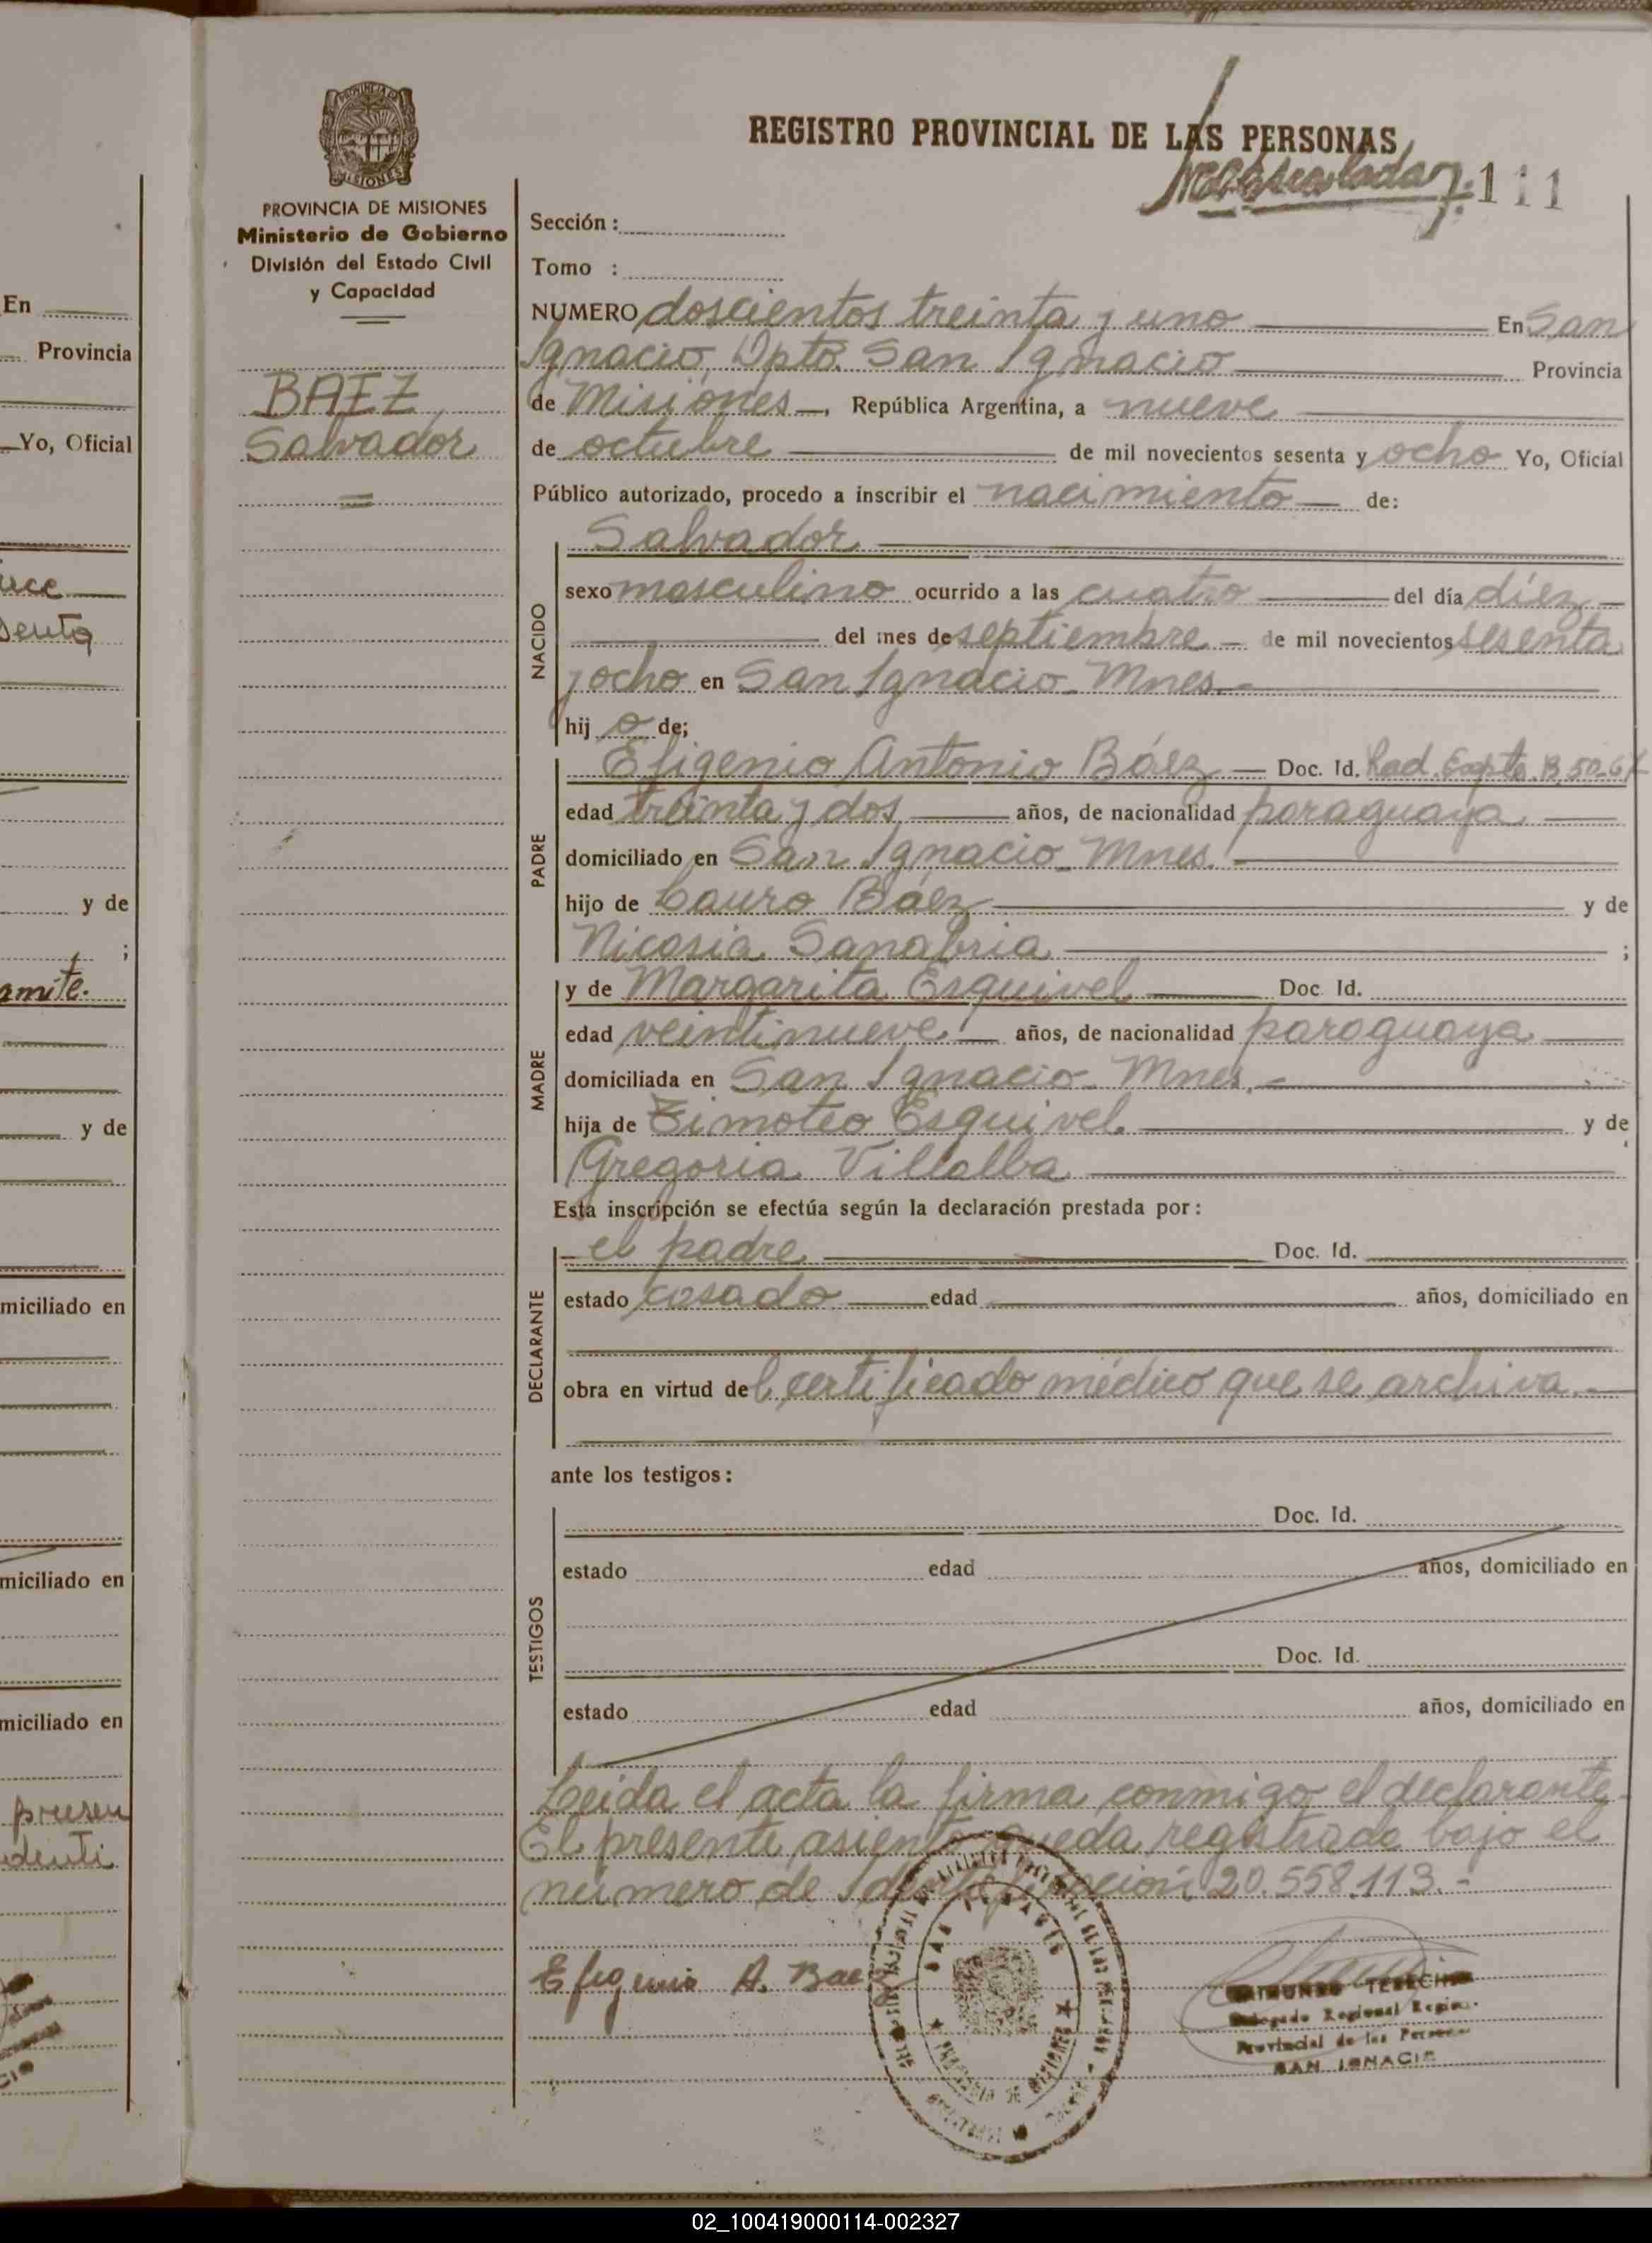 En
Provincia
Yo, Oficial
y de
;
amite.
y de
miciliado en
miciliado en
miciliado en
presen
denti
PROVINCIA DE MISIONES
Ministerio de Gobierno
División del Estado Civil
y Capacidad
BAEZ,
Salvador
REGISTRO PROVINCIAL DE LAS PERSONAS
111
Sección :
Tomo :
NUMERO doscientos treinta y uno En San
Ignacio, Dpto. San Ignacio Provincia
de Misiones, República Argentina, a nueve
de octubre de mil novecientos sesenta y ocho Yo, Oficial
Público autorizado, procedo a inscribir el nacimiento de:
Salvador
NACIDO
sexo masculino ocurrido a las cuatro del día diez
del mes de septiembre de mil novecientos sesenta
y ocho en San Ignacio Mnes.
hij o de;
PADRE
Efigenio Antonio Báez Doc. Id. Rad. Expte. B 50-67
edad treinta y dos años, de nacionalidad paraguaya
domiciliado en San Ignacio Mnes.
hijo de Lauro Báez y de
Nicasia Sanabria ;
MADRE
y de Margarita Esquivel Doc. Id.
edad veintinueve años, de nacionalidad paraguaya
domiciliada en San Ignacio Mnes.
hija de Timoteo Esquivel y de
Gregoria Villalba
Esta inscripción se efectúa según la declaración prestada por :
DECLARANTE
el padre Doc. Id.
estado casado edad años, domiciliado en
obra en virtud del certificado médico que se archiva.
ante los testigos :
TESTIGOS
Doc. Id.
estado edad años, domiciliado en
Doc. Id.
estado edad años, domiciliado en
Leida el acta la firma conmigo el declarante.
El presente asiento queda registrado bajo el
número de Identificación 20.558.113.-
Efigenio A. Baez
PROVINCIA DE MISIONES
Delegado Regional
Provincial de las Personas
SAN IGNACIO
02_100419000114-002327